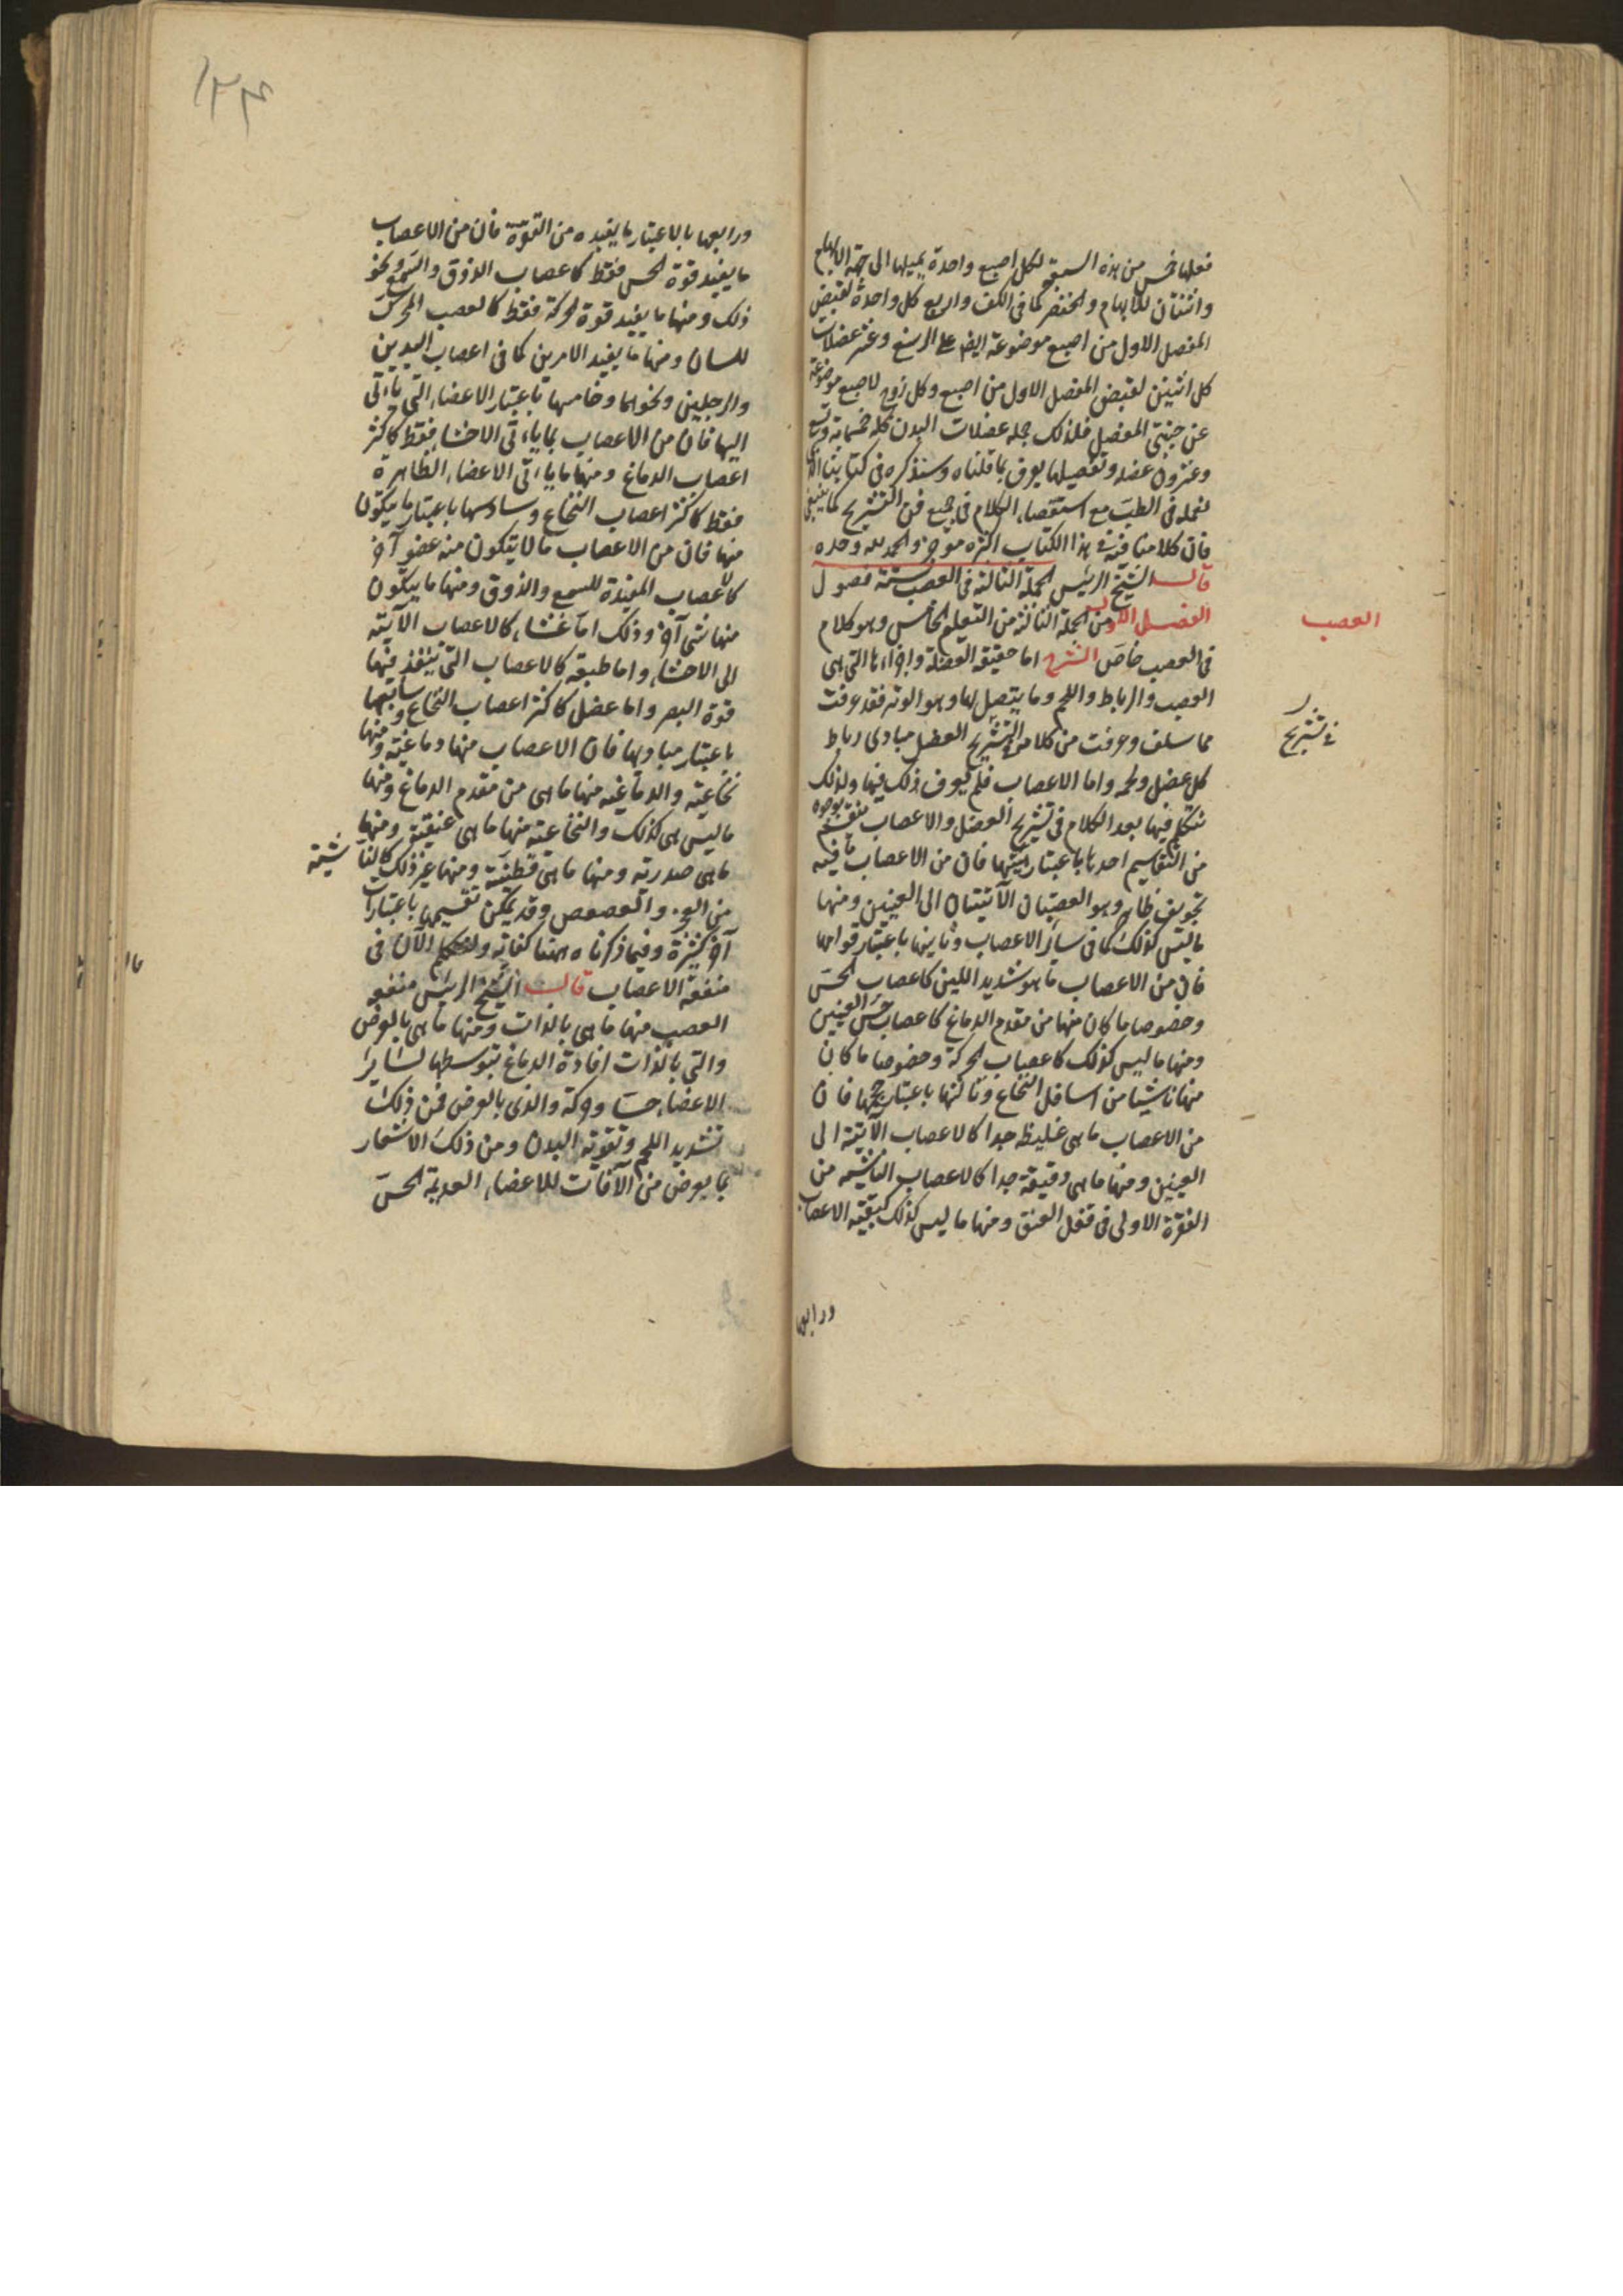 فعلها خمس من هذه السبع لكل اصبع واحدة يميلها الى جهة الابهام
واثنتان للابهام والخنصر كما فى الكف واربع كل واحدة لقبض
المفصل الاول من اصبع موضوعة ايضا على الرسغ وعشر عضلات
كل اثنين لقبض المفصل الاول من اصبع وكل زوج لاصبع موضوعة
عن جنبتى المفصل فلذلك جملة عضلات البدن كله خمسمائة وتسع
وعشرون عضلة وتفصيلها يعرف بما قلناه وسنذكره فى كتابنا الذى
نعمله فى الطب مع استقصاء الكلام فى جميع فن التشريح كما ينبغى
فان كلامنا فيه فى هذا الكتاب اكثره موجز والحمد لله وحده
قال الشيخ الرئيس الجملة الثالثة فى العصب ستة فصول
الفصل الاول من الجملة الثالثة من التعليم الخامس وهو كلام
فى العصب خاص الشرح اما حقيقة العضلة واجزاءها التى هى
العصب والرباط واللحم وما يتصل بها وهو الوتر فقد عرفت
مما سلف وعرفت من كلامنا فى تشريح العضل مبادى رباط
كل عضل ولحمه واما الاعصاب فلم يعرف ذلك فيها ولذلك
نتكلم فيها بعد الكلام فى تشريح العضل والاعصاب تنقسم بوجوه
من التقاسيم احدها باعتبار هيئتها فان من الاعصاب ما فيه
تجويف ظاهر وهو العصبتان الآتيتان الى العينين ومنها
ما ليس كذلك كما فى سائر الاعصاب وثانيها باعتبار قوامها
فان من الاعصاب ما هو شديد اللين كاعصاب الحس
وخصوصا ما كان منها من مقدم الدماغ كاعصاب حس العينين
ومنها ما ليس كذلك كاعصاب الحركة وخصوصا ما كان
منها ناشيا من اسافل النخاع وثالثها باعتبار حجمها فان
من الاعصاب ما هى غليظة جدا كالاعصاب الآتية الى
العينين ومنها ما هى دقيقة جدا كالاعصاب الناشية من
الفقرة الاولى فى قفل العنق ومنها ما ليس كذلك كبقية الاعصاب
ورابعها
العصب
فى تشريح
ورابعها بالاعتبار ما يفيده من القوة فان من الاعصاب
ما يفيد قوة الحس فقط كاعصاب الذوق والسمع ونحو
ذلك ومنها ما يفيد قوة الحركة فقط كالعصب المحرك
للسان ومنها ما يفيد الامرين كما فى اعصاب اليدين
والرجلين ونحوهما وخامسها باعتبار الاعضاء التى ياءتى
اليها فان من الاعصاب ما ياءتى الاحشاء فقط كاكثر
اعصاب الدماغ ومنها ما ياءتى الاعضاء الظاهرة
فقط كاكثر اعصاب النخاع وسادسها باعتبار ما يتكون
منها فان من الاعصاب ما لا يتكون منه عضو آخر
كالاعصاب المفيدة للسمع والذوق ومنها ما يتكون
منها شى آخر وذلك اما غشاء كالاعصاب الآتية
الى الاحشاء واما طبقة كالاعصاب التى ينفذ فيها
قوة البصر واما عضل كاكثر اعصاب النخاع وسابعها
باعتبار مباديها فان الاعصاب منها دماغية ومنها
نخاعية والدماغية منها ما هى من مقدم الدماغ ومنها
ما ليس هى كذلك والنخاعية منها ما هى عنقية ومنها
ما هى صدرية ومنها ما هى قطنية ومنها غير ذلك كالناشية
من العجز والعصعص وقد يمكن تقسيمها باعتبارات
آخر كثيرة وفيما ذكرناه ههنا كفاية ولنتكلم الآن فى
منفعة الاعصاب قال الشيخ الرئيس منفعة
العصب منها ما هى بالذات ومنها ما هى بالعرض
والتى بالذات افادة الدماغ بتوسطها لسائر
الاعضاء حسا وحركة والذى بالعرض فمن ذلك
تشديد اللحم وتقوية البدن ومن ذلك الاشعار
بما يعرض من الآفات للاعضاء العديمة الحس